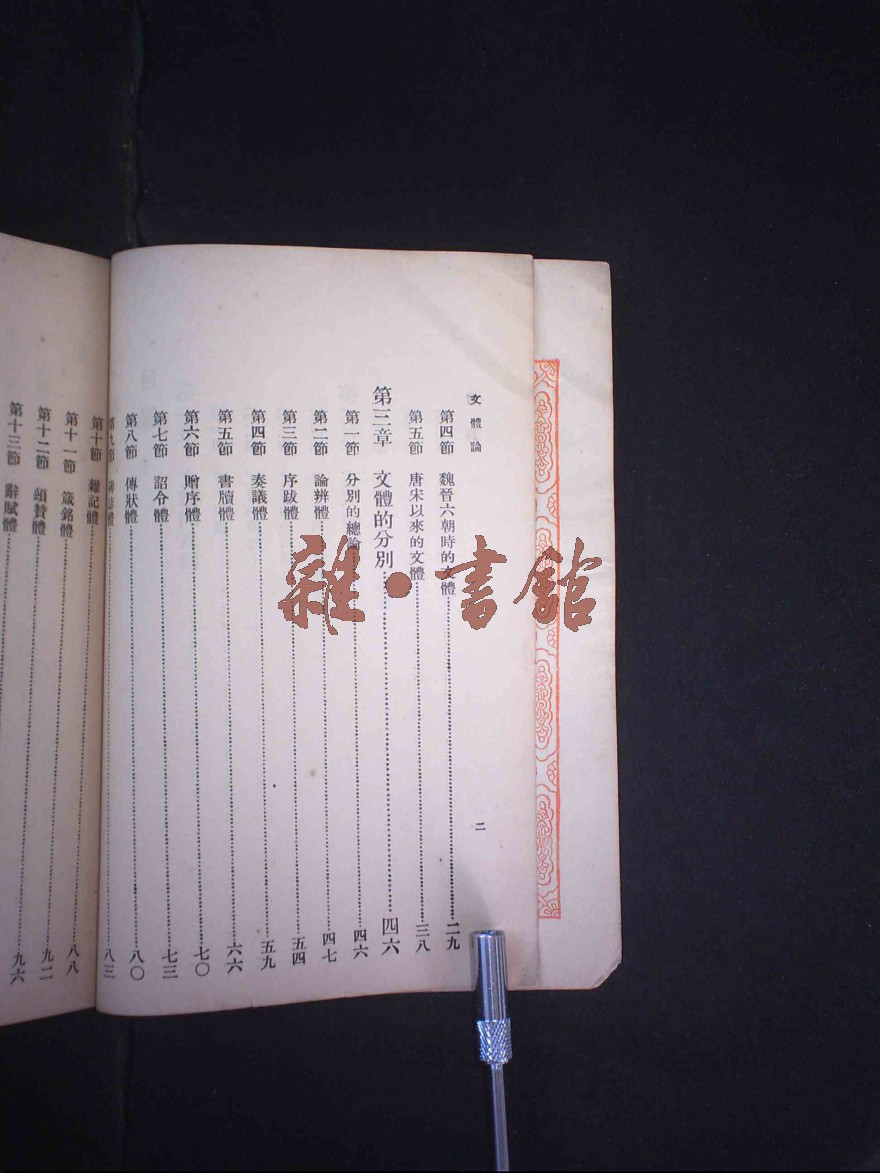 文體論
二
第四節 魏晉六朝時的文體 二九
第五節 唐宋以來的文體 三八
第三章 文體的分別 四六
第一節 分別的總論 四六
第二節 論辨體 四七
第三節 序跋體 五四
第四節 奏議體 五九
第五節 書牘體 六六
第六節 贈序體 七〇
第七節 詔令體 七三
第八節 傳狀體 八〇
第九節 碑誌體 八三
第十節 雜記體
第十一節 箴銘體 八八
第十二節 頌贊體 九二
第十三節 辭賦體 九六
雜·書館